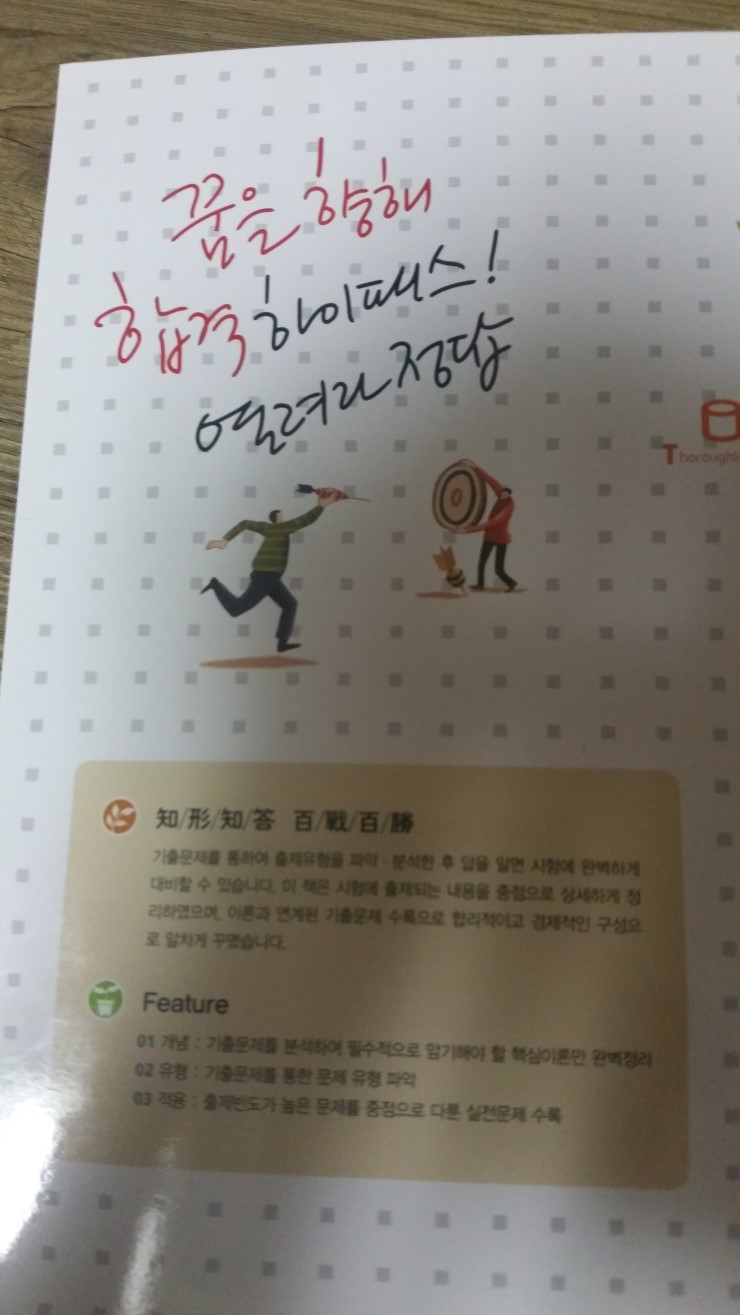 꿈을 향해
합격 하이패스!
열려라 정답
Thoroughl
知/形/知/答 百/戰/百/勝
기출문제를 통하여 출제유형을 파악·분석한 후 답을 알면 시험에 완벽하게
대비할 수 있습니다. 이 책은 시험에 출제되는 내용을 중점으로 상세하게 정
리하였으며, 이론과 연계된 기출문제 수록으로 합리적이고 경제적인 구성으
로 알차게 꾸몄습니다.
Feature
01 개념 : 기출문제를 분석하여 필수적으로 암기해야 할 핵심이론만 완벽정리
02 유형 : 기출문제를 통한 문제 유형 파악
03 적용 : 출제빈도가 높은 문제를 중점으로 다룬 실전문제 수록